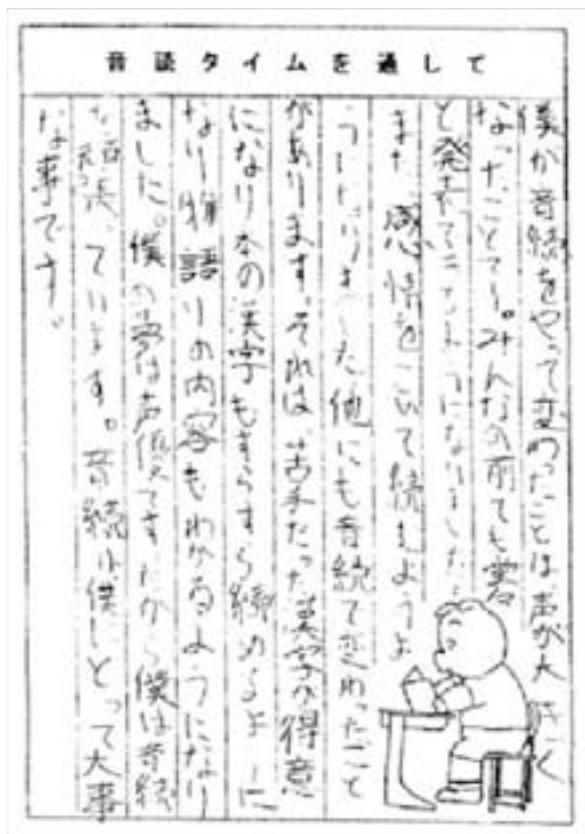 音読タイムを通して
僕が音続をやって変わったことは声が大きく
なったことです。みんなの前でも堂
と発表できるようになりました。
また感情をこめて続むように
なりました他にも音続で変わったこと
があります。それは苦手だった漢字が得意
になり本の漢字もすらすら続めるように
なり物語りの内容もわかるようになり
ました。僕の夢は声優ですだから僕は音続
を頑張っています。音続は僕にとって大事
な事です。